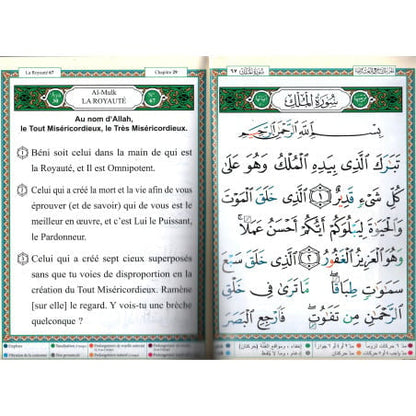 La Royauté 67
Chapitre 29
Al-Mulk
LA ROYAUTÉ
N° 67
Au nom d'Allah,
le Tout Miséricordieux, le Très Miséricordieux.
Béni soit celui dans la main de qui est
la Royauté, et Il est Omnipotent.
Celui qui a créé la mort et la vie afin de vous
éprouver (et de savoir) qui de vous est le
meilleur en œuvre, et c'est Lui le Puissant,
le Pardonneur.
Celui qui a créé sept cieux superposés
sans que tu voies de disproportion en la
création du Tout Miséricordieux. Ramène
[sur elle] le regard. Y vois-tu une brèche
quelconque ?
سُورَةُ المُلْك ٦٧
سُورَةُ المُلْكِ
بِسْمِ اللَّهِ الرَّحْمَٰنِ الرَّحِيمِ
تَبَارَكَ الَّذِي بِيَدِهِ الْمُلْكُ وَهُوَ عَلَىٰ
كُلِّ شَيْءٍ قَدِيرٌ ١ الَّذِي خَلَقَ الْمَوْتَ
وَالْحَيَاةَ لِيَبْلُوَكُمْ أَيُّكُمْ أَحْسَنُ عَمَلًا
وَهُوَ الْعَزِيزُ الْغَفُورُ ٢ الَّذِي خَلَقَ سَبْعَ
سَمَاوَاتٍ طِبَاقًا مَا تَرَىٰ فِي خَلْقِ
الرَّحْمَٰنِ مِنْ تَفَاوُتٍ فَارْجِعِ الْبَصَرَ